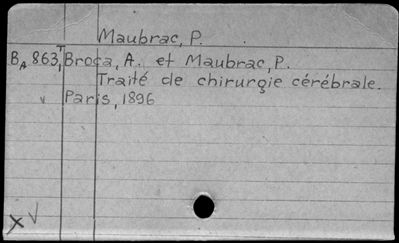 Maubrac, P.
BA 863T Broca, A. et Maubrac, P.
Traité de chirurgie cérébrale.
Paris, 1896